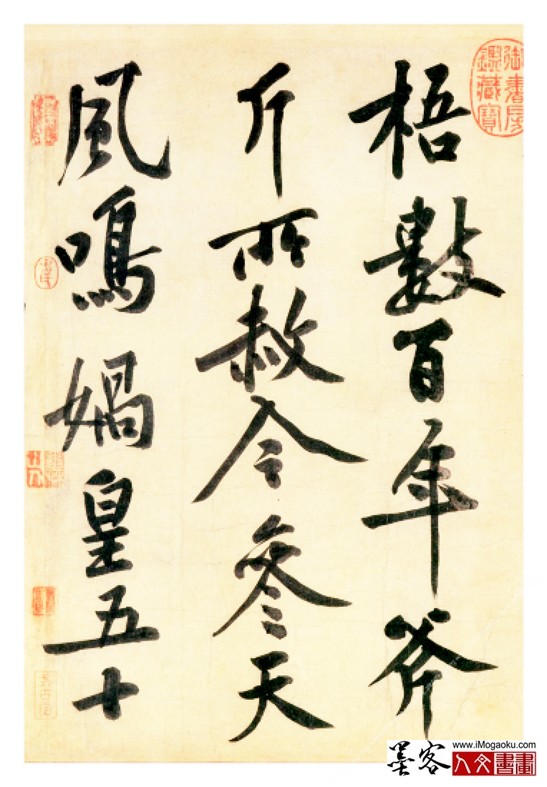 御書房鑑藏寶
梧數百年斧
斤所赦今參天
風鳴媧皇五十
墨客
www.iMogaoku.com
人文書畫